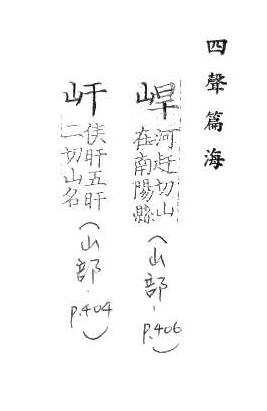 四聲篇海
峷河赶切山
在南陽縣
(山部.
P.406)
屽侯旰五旰
二切山名
(山部.
P.404)